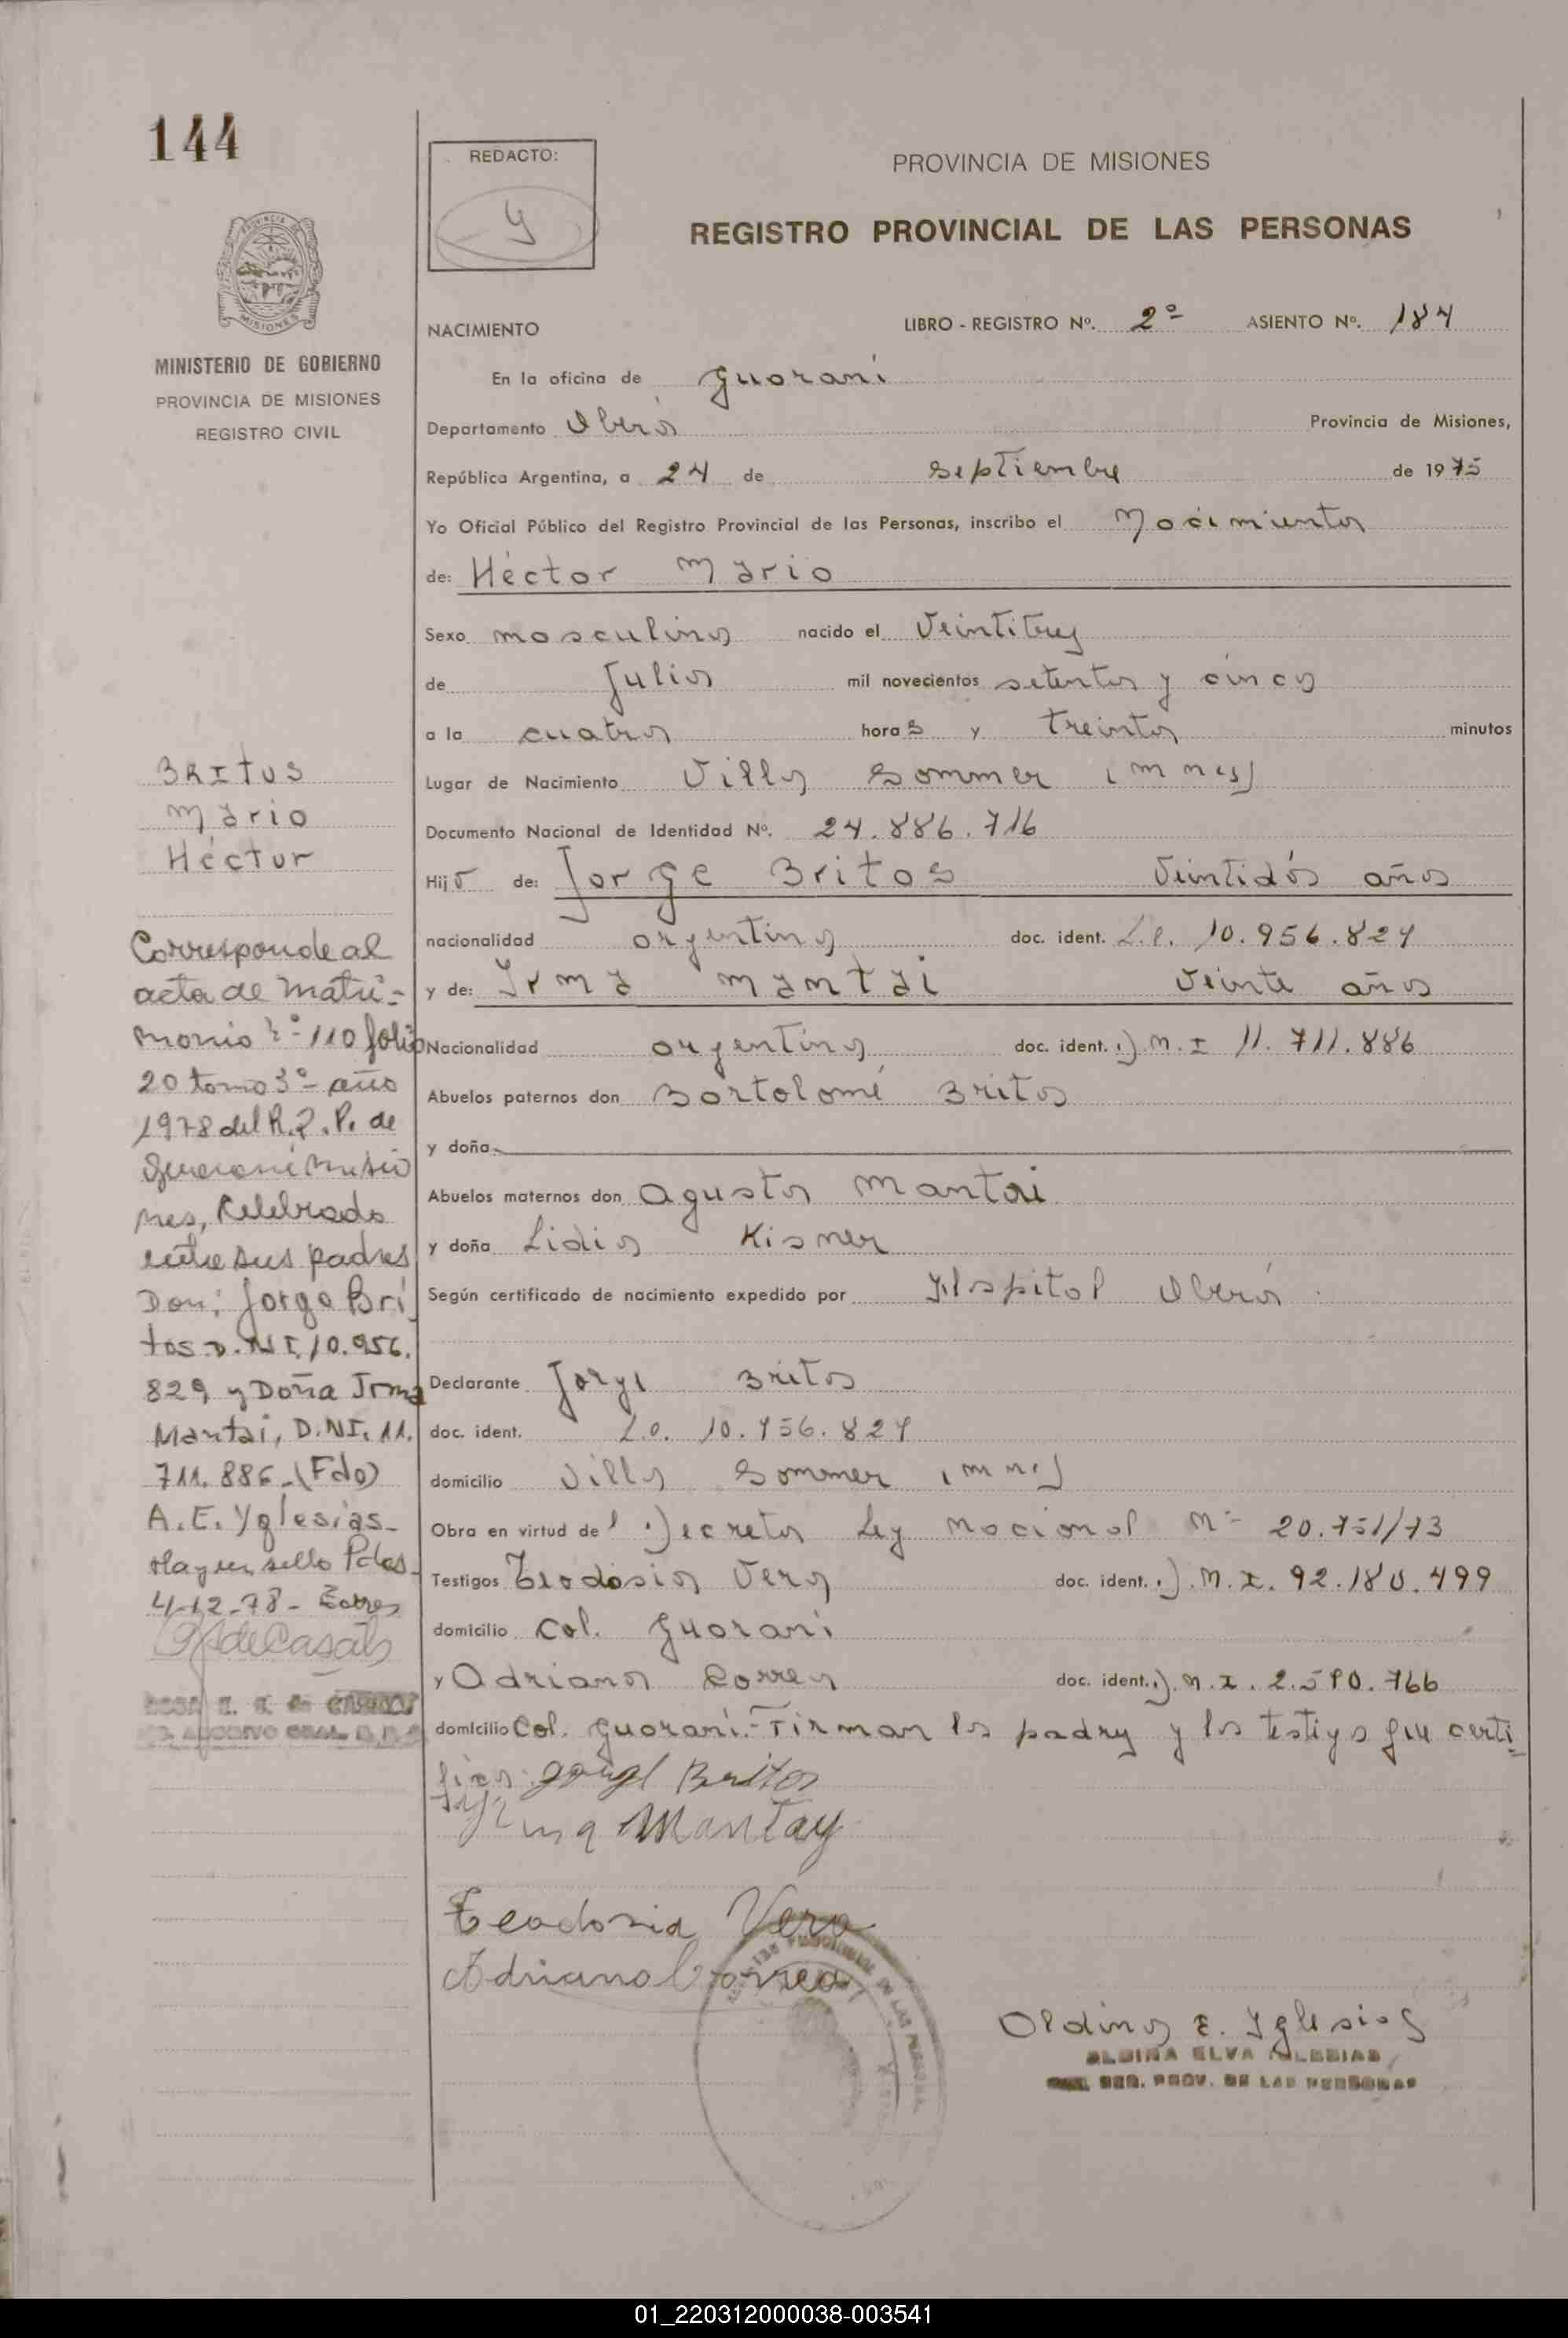 144
REDACTO:
y
PROVINCIA DE MISIONES
REGISTRO PROVINCIAL DE LAS PERSONAS
MISIONES
MINISTERIO DE GOBIERNO
PROVINCIA DE MISIONES
REGISTRO CIVIL
NACIMIENTO LIBRO - REGISTRO Nº. 2º ASIENTO Nº. 184
En la oficina de Guaraní
Departamento Oberá Provincia de Misiones,
República Argentina, a 24 de Septiembre de 1975
Yo Oficial Público del Registro Provincial de las Personas, inscribo el Nacimiento
de: Héctor Mario
Sexo masculino nacido el Veintitres
de Julio mil novecientos setenta y cinco
a la cuatro horas y treinta minutos
Lugar de Nacimiento Villa Sommer (Mnes)
Documento Nacional de Identidad Nº. 24.886.716
Hijo de: Jorge Britos Veintidós años
nacionalidad argentina doc. ident. L.E. 10.956.829
y de: Irma Mantai Veinte años
Nacionalidad argentina doc. ident. D.N.I 11.711.886
Abuelos paternos don Bartolomé Britos
y doña
Abuelos maternos don Agusto Mantai
y doña Lidia Kisner
Según certificado de nacimiento expedido por Hospital Oberá
Declarante Jorge Britos
doc. ident. L.E. 10.956.829
domicilio Villa Sommer (Mnes)
Obra en virtud del Decreto Ley Nacional Nº 20.751/73
Testigos Teodosia Vera doc. ident. D.N.I. 92.180.499
domicilio Col. Guaraní
y Adriano Correa doc. ident. D.N.I. 2.590.766
domicilio Col. Guaraní.- Firman los padres y los testigos que certi=
fico: Jorge Britos
Irma Mantay
Teodosia Vera
Adriano Correa
Aldina E. Yglesias
ALDINA ELVA YGLESIAS
REG. PROV. DE LAS PERSONAS
BRITOS
Mario
Héctor
Corresponde al
acta de Matri-
monio Nº 110 folio
20 tomo 3º- año
1978 del R.P.P. de
Guaraní Misio
nes, Celebrado
entre sus padres
Don; Jorge Bri
tos D.N.I. 10.956.
829, y Doña Irma
Mantai, D.N.I. 11.
711.886-(Fdo)
A.E. Yglesias-
Hay un sello Pdas-
4-12-78-
de Casals
01_220312000038-003541